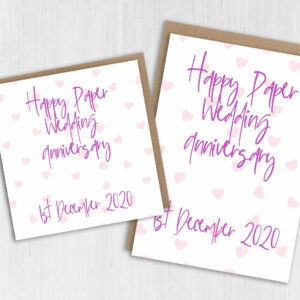 Happy Paper
Wedding
anniversary
1st December 2020
Happy Paper
Wedding
anniversary
1st December 2020